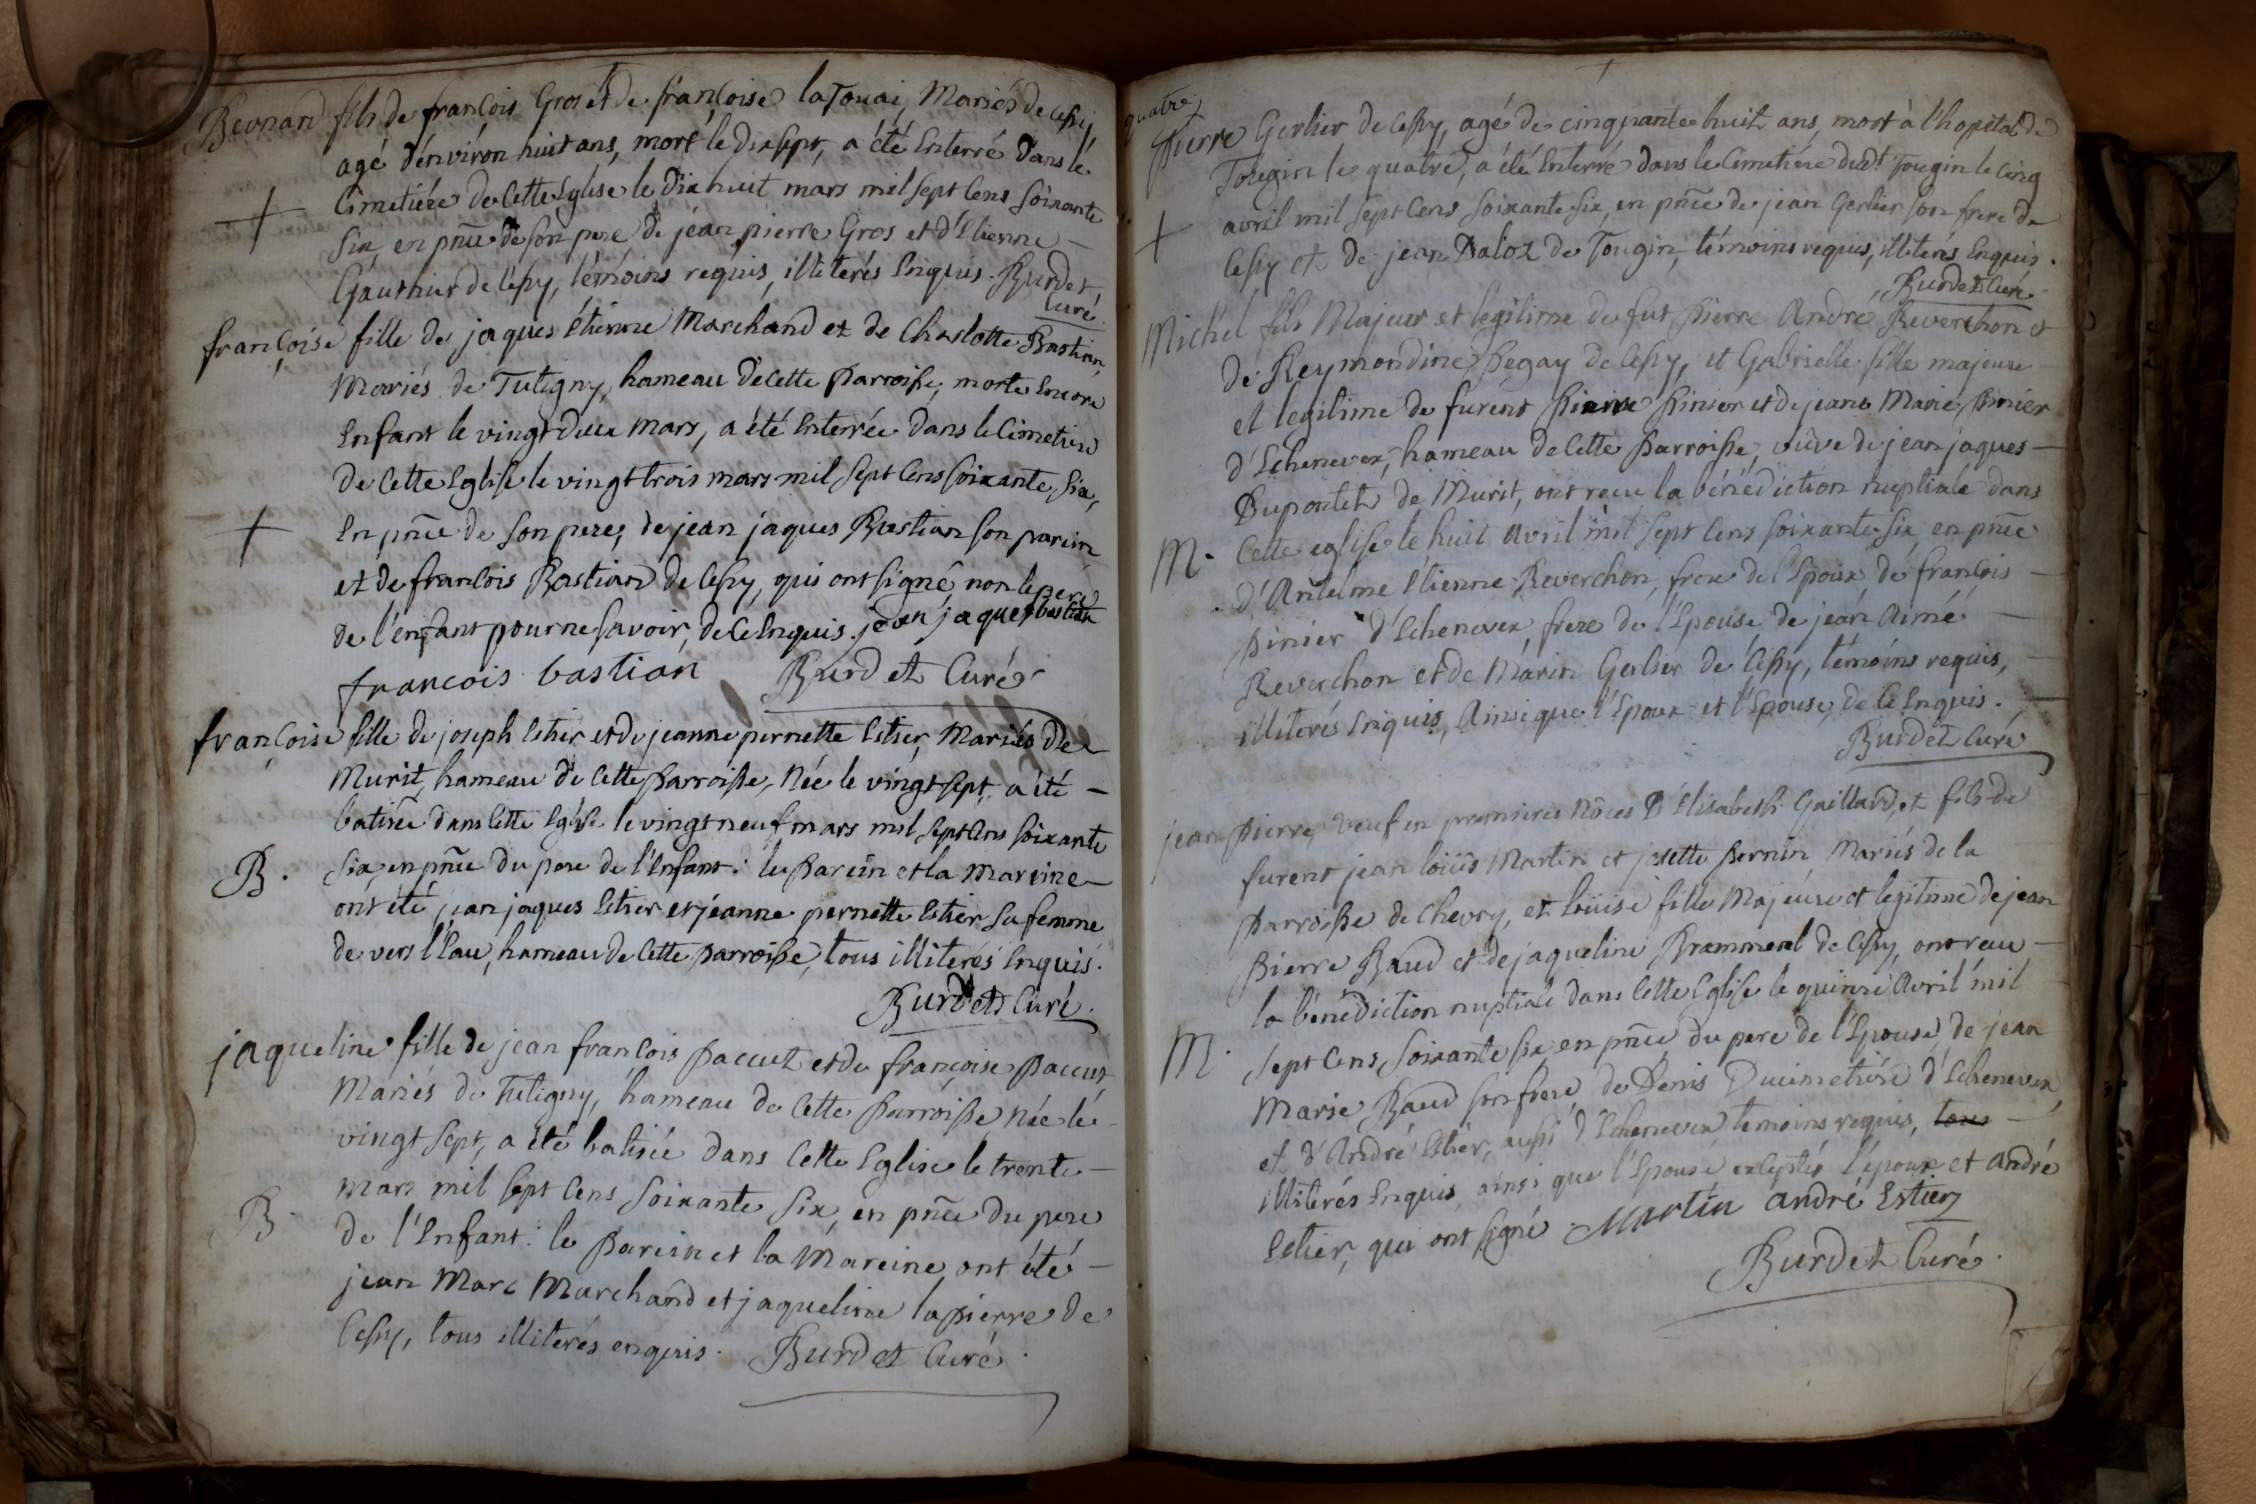 Bernard fils de françois Gros et de françoise laTouai, Mariés de Cessy,
agé d'environ huit ans, mort le dix sept, a été Enterré dans le
Cimetiére de Cette Eglise le dix huit mars mil sept Cens soixante
six, en pñce de son pere, de jean pierre Gros et d'Etienne
Gauthier de Cessy, témoins requis, illiterés Enquis. Burdet
Curé.
françoise fille de jaques étienne Marchand et de Charlotte Bastian
Mariés de Tutigny, hameau de Cette Parroisse, morte Encore
Enfant le vingt deux mars, a été Enterrée dans le Cimetiere
de Cette Eglise le vingt trois mars mil sept Cens soixante six,
En pñce de son pere, de jean jaques Bastian son parein
et de françois Bastian de Cessy, qui ont signé, non le pere
de l'enfant pour ne savoir, de Ce Enquis. jean jaques bastian
francois bastian Burdet Curé
françoise fille de joseph Estier et de jeanne pernette Estier, Mariés de
Murit, hameau de Cette Parroisse, Née le vingt sept, a été
batisée dans Cette Eglise le vingt neuf mars mil sept Cens soixante
B. six, en pñce du pere de l'Enfant: le Parein et la Mareine
ont été jean jaques Estier et jeanne pernette Estier sa femme
de vers l'Eau, hameau de Cette Parroisse, tous illiterés Enquis.
Burdet Curé.
jaqueline fille de jean françois Paccut et de françoise Paccut
Mariés de Tutigny, hameau de Cette Parroisse Née le
vingt sept, a été batisée dans Cette Eglise le trente
mars mil sept Cens soixante six, en pñce du pere
B. de l'Enfant: le Parein et la Mareine ont été
jean Marc Marchand et jaqueline lapierre de
Cessy, tous illiterés enquis. Burdet Curé.
quatre
Pierre Gerlier de Cessy, agé de cinquante huit ans, mort à l'hopital de
Tougin le quatre, a été Enterré dans le Cimetiére dudt Tougin le Cinq
avril mil sept Cens soixante six, en pñce de jean Gerlier son frere de
Cessy et de jean Daloz de Tougin, témoins requis, illiterés Enquis.
Burdet Curé
Michel fils Majeur et legitime de fut Pierre André Reverchon et
de Reymondine Pegay de Cessy, et Gabrielle fille majeure
et legitime de furent Pierre Pinier et de jeane Marie Pinier
d'Echenevex, hameau de Cette Parroisse, vûve de jean jaques
Dupontet de Murit, ont reçu la bénédiction nuptiale dans
M. Cette eglise le huit avril mil sept Cens soixante six en pñce
d'Antelme Etienne Reverchon, frere de l'Epoux, de françois
Pinier d'Echenevex, frere de l'Epouse, de jean Aimé
Reverchon et de Marin Gerlier de Cessy, témoins requis,
illiterés Enquis, Ainsi que l'Epoux et l'Epouse, de Ce Enquis.
Burdet Curé
jean Pierre, veuf en premieres Nôces D'Elisabeth Gaillard, et fils de
furent jean loüis Martin et josette Pernin Mariés de la
Parroisse de Chevry, et loüise fille Majeure et legitime de jean
Pierre Baud et de jaqueline Brammerel de Cessy, ont reçu
la bénédiction nuptiale dans Cette Eglise le quinze Avril mil
M. sept Cens soixante six en pñce du pere de l'Epouse, de jean
Marie Baud son frere, de Denis Ducimetiére d'Echenevex,
et d'André Estier, aussi d'Echenevex témoins requis, tous
illiterés Enquis, ainsi que l'Epouse, exceptés l'époux et André
Estier, qui ont signé Martin andré Estier
Burdet Curé.